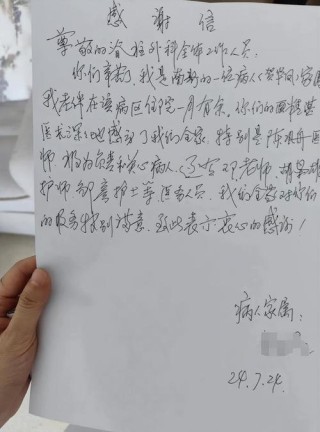 感谢信
尊敬的脊柱外科全体工作人员:
你们辛苦了,我是南新的一位病人(家属)
我老伴在该病区住院一月有余。你们的
医术深深地感动了我们全家,特别是陈
师 极为负责和关心病人,还有邓老师,胡
护师 护士等医务人员,我们全家对你们
的服务特别满意,致此表示衷心的感谢!
病人家属:
24.7.24.